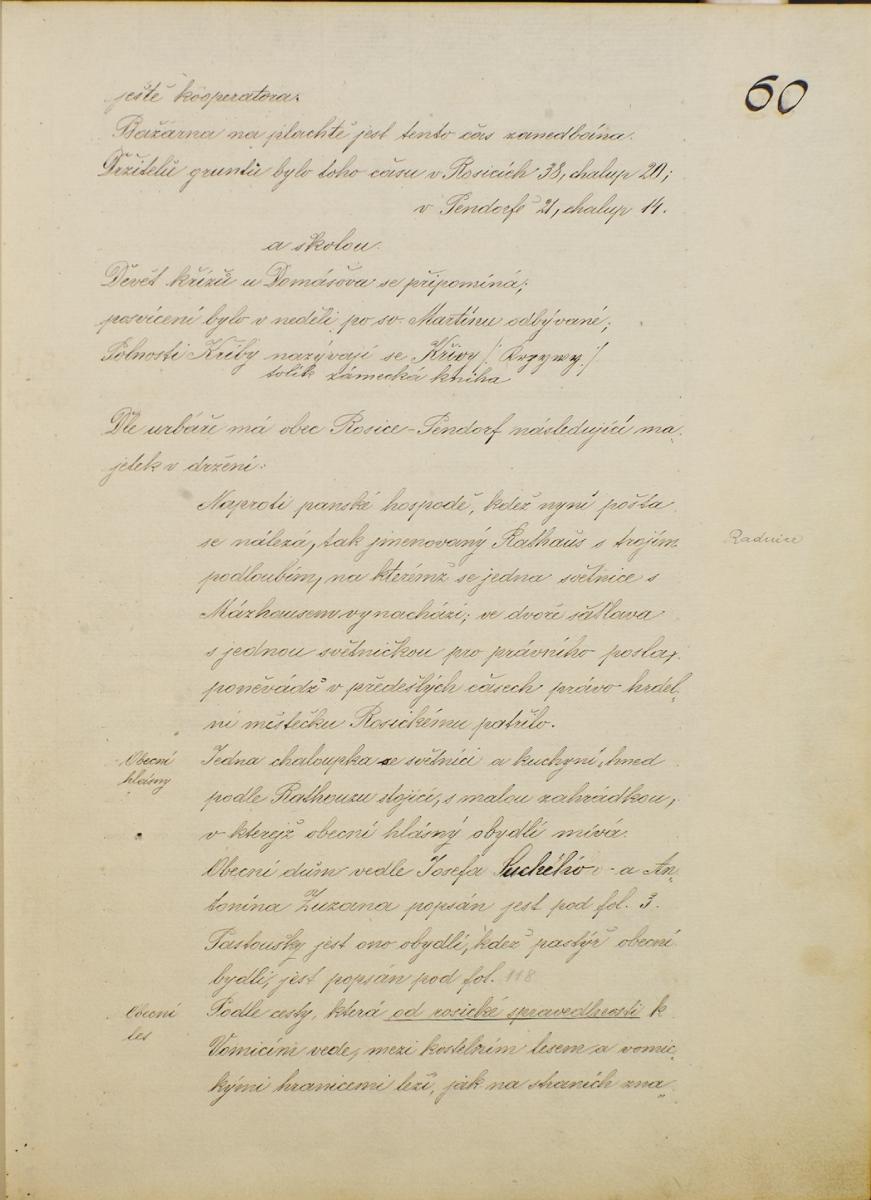 60
ještě kooperatora.
Bažárna na plachtě jest tento čas zanedbána.
Držitelů gruntů bylo toho času v Rosicích 38, chalup 20;
v Pendorfě 21, chalup 14.
a školou.
Devět křížů u Domášova se připomíná;
posvícení bylo v neděli po sv. Martinu odbývané;
Polnosti Křiby nazývají se Křivy /: Krzywy :/
tolik zámecká kniha
Dle urbáře má obec Rosice-Pendorf následující ma-
jetek v držení:
Naproti panské hospodě, kdež nyní pošta
se nálezá, tak jmenovaný Rathaus s trojím
Radnice
podloubím, na kterémž se jedna světnice s
Mázhausem vynachází; ve dvoře šatlava
s jednou světničkou pro právního posla,
poněvádž v předešlých časech právo hrdel-
ní městečku Rosickému patřilo.
Obecní
hlásný
Jedna chaloupka se světnicí a kuchyní, hned
podle Rathouzu stojící, s malou zahrádkou,
v kterejž obecní hlásný obydlí mívá.
Obecní dům vedle Josefa Suchého - a An-
tonína Zuzana popsán jest pod fol. 3.
Pastoušky jest ono obydlí, kdež pastýř obecní
bydlí, jest popsán pod fol. 118
Obecní
les
Podle cesty, která od rosické spravedlnosti k
Vomicím vede, mezi kostelním lesem a vomic-
kými hranicemi leží, jak na straních zna-